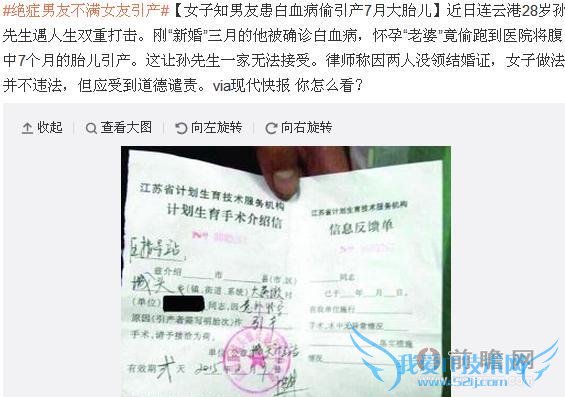 #绝症男友不满女友引产#【女子知男友患白血病偷引产7月大胎儿】近日连云港28岁孙
先生遇人生双重打击。刚“新婚”三月的他被确诊白血病，怀孕“老婆”竟偷跑到医院将腹
中7个月的胎儿引产。这让孙先生一家无法接受。律师称因两人没领结婚证，女子做法
并不违法，但应受到道德谴责。via现代快报 你怎么看？
收起 查看大图 向左旋转 向右旋转
江苏省计划生育技术服务机构
计划生育手术介绍信
兹介绍 市 县(市、区)
城头 乡(镇、街道、系统) 村
(单位) 同志，因
原因(引产者需写明胎次)作 引产
手术，请予接洽为荷。
单位(公章)
有效期 天 2015年2月
江苏省计划生育技术服务机构
信息反馈单
同志
已于 年 月 日，
在我单位施行
手术，术中无异常情况
落实措施
情况
前瞻网
我爱IT技术网
www.52ij.com